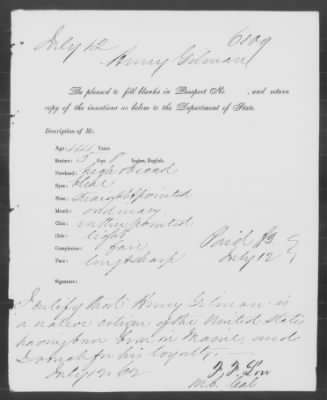 July 12
6109
Henry Gilman
Be pleased to fill blanks in Passport No. , and return
copy of the insertions as below to the Department of State.
Description of Mr.
Age: 44 Years
Stature: 5 Feet 8 Inches, English.
Forehead: high & broad
Eyes: blue
Nose: straight & pointed
Mouth: ordinary
Chin: rather pointed
Hair: light
Complexion: fair
Face: long & sharp
Paid $3.
July 12
Signature:
I certify that Henry Gilman is
a native citizen of the United States
having been born in Maine, and
I vouch for his loyalty.
July 12, 62
F. F. Low
M.C. Cal